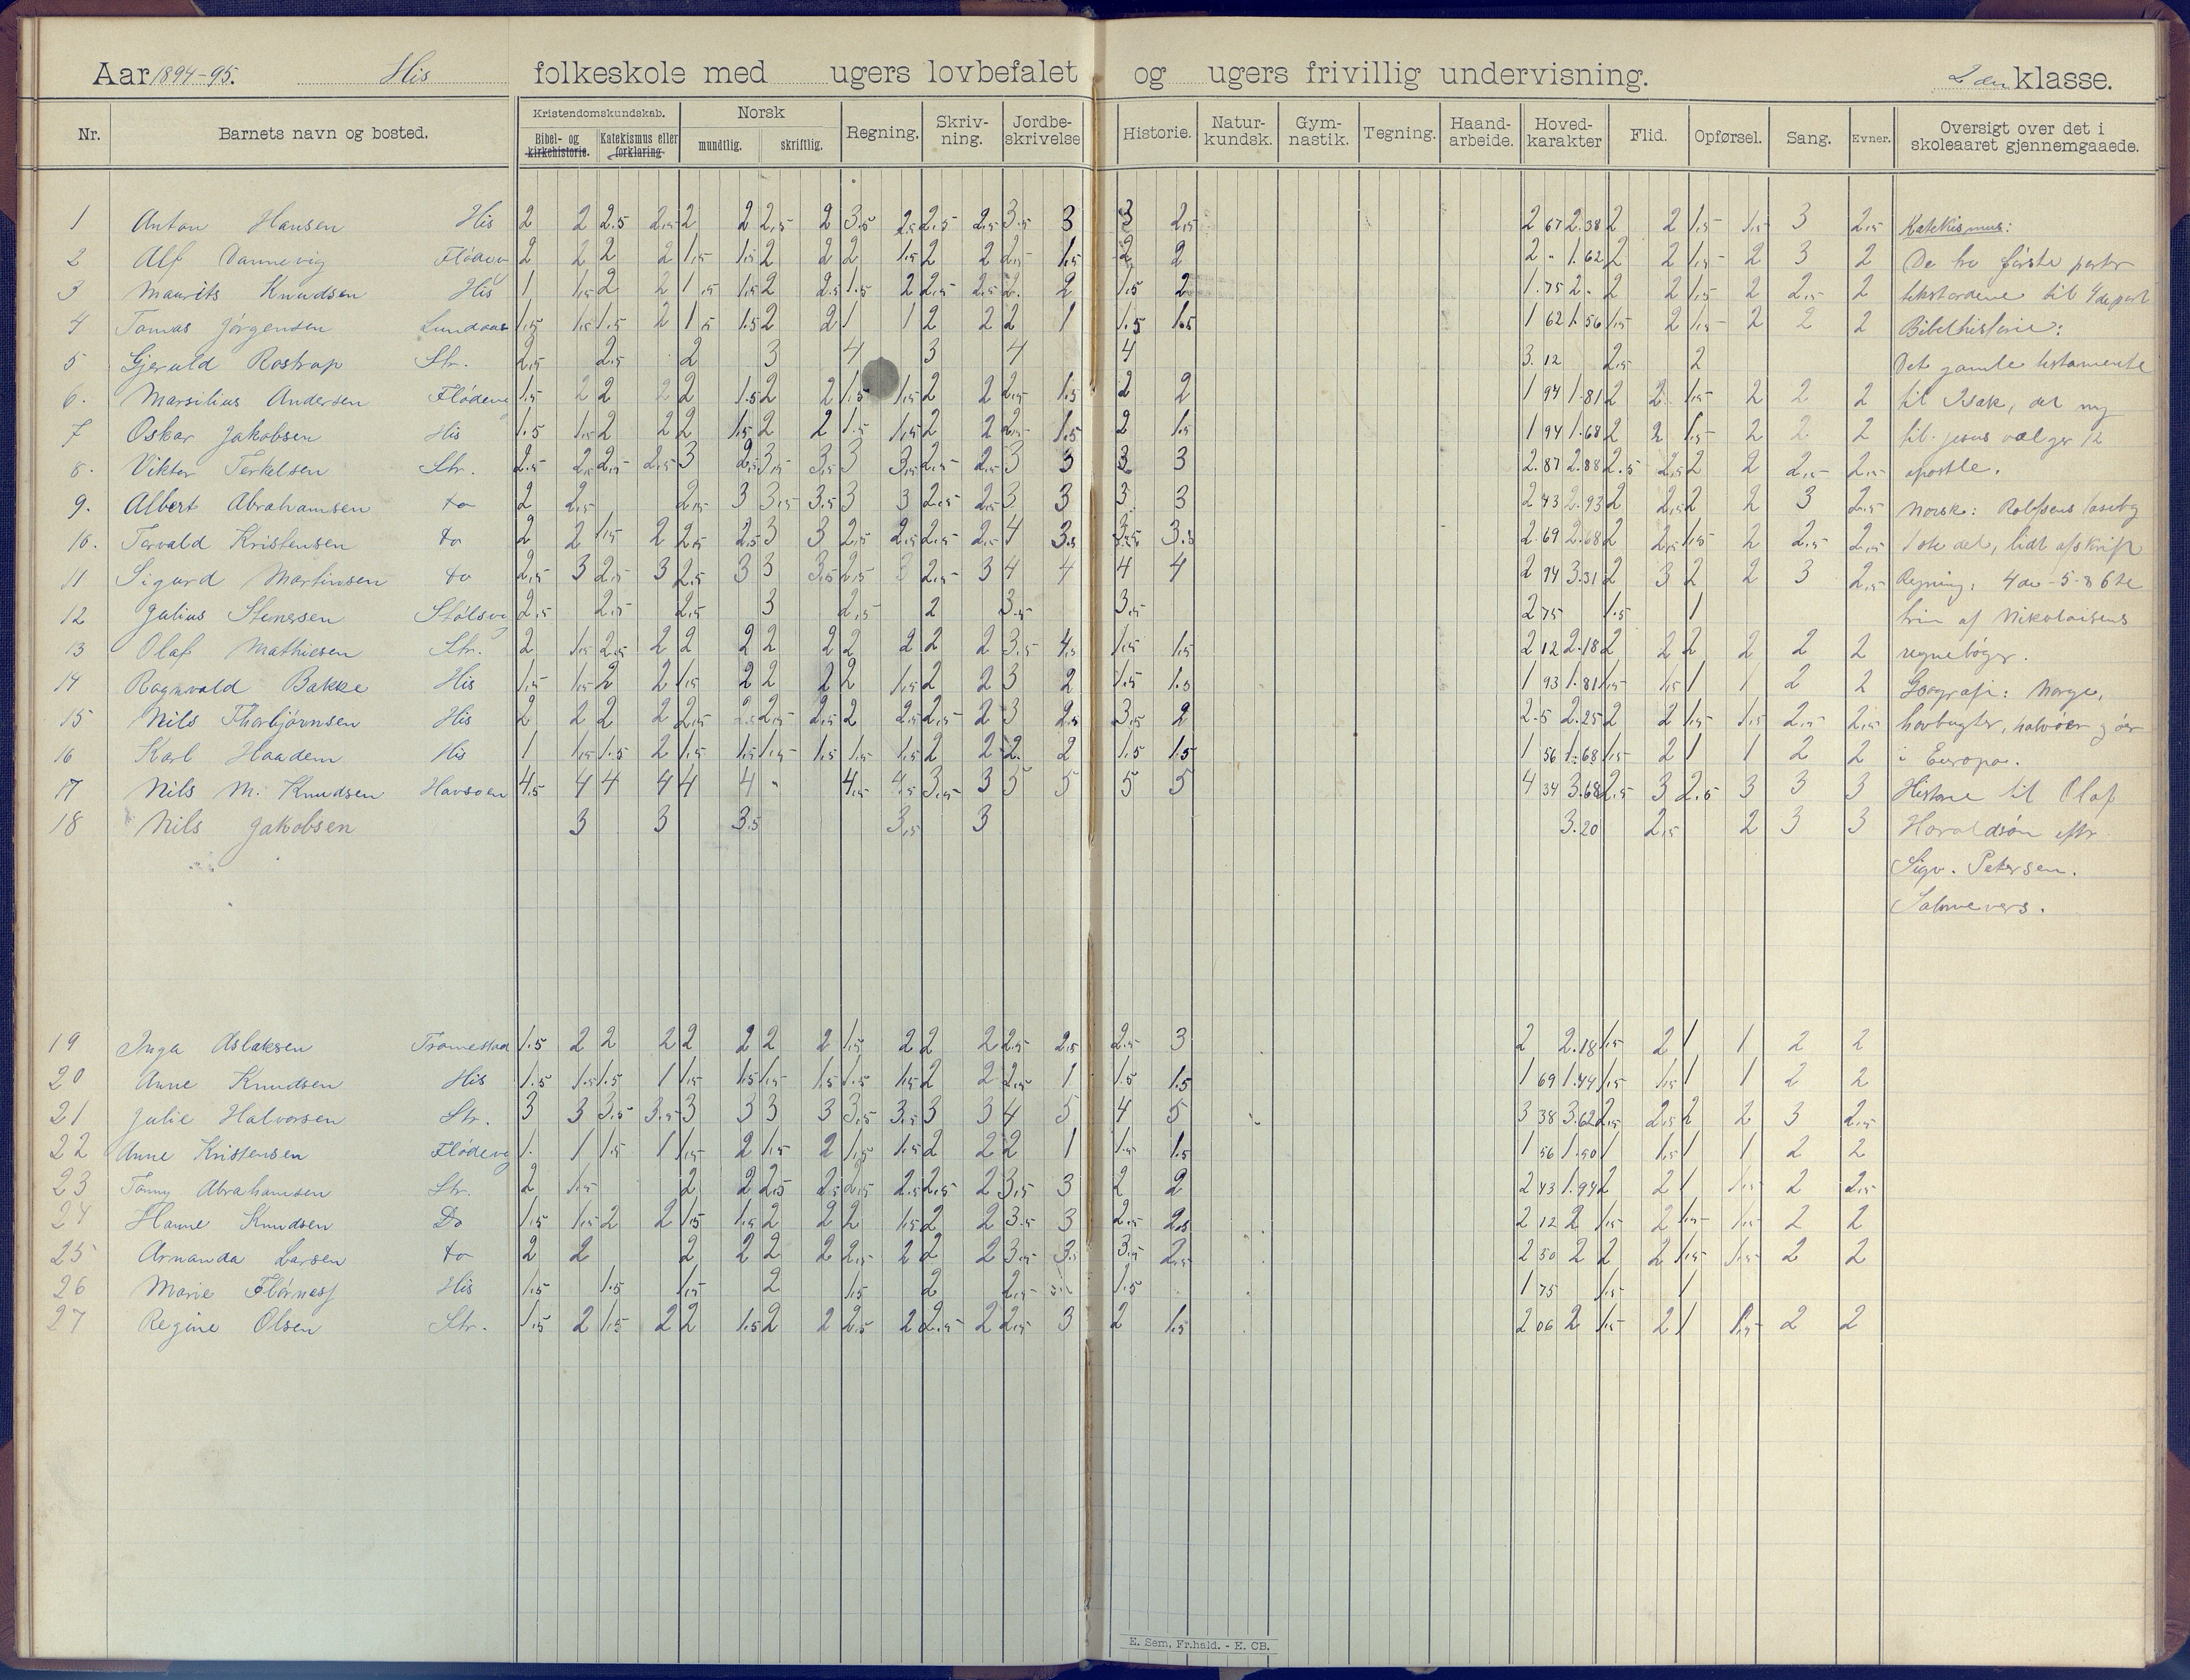 Aar 1894-95. His folkeskole med ugers lovbefalet og ugers frivillig undervisning. 2den klasse.
Nr. Barnets navn og bosted. Kristendomskundskab. Norsk Regning. Skriv-ning. Jordbe-skrivelse Historie. Natur-kundsk. Gym-nastik. Tegning. Haand-arbeide. Hoved-karakter Flid. Opførsel. Sang. Evner. Oversigt over det i skoleaaret gjennemgaaede.
Bibel- og kirkehistorie. Katekismus eller forklaring mundtlig. skriftlig.
1 Anton Hansen His 2 2 2.5 2.5 2 2 2.5 2 3.5 2.5 2.5 2.5 3.5 3 3 2.5 2 67 2.38 2 2 1.5 1.5 3 2.5 Katekismus:
2 Alf Dannevig Flödev 2 2 2 2 1.5 1.5 2 2 2 1.5 2 2 2.5 1.5 2 2 2 - 1.62 2 2 1.5 2 3 2 De tre förste parter
3 Maurits Knudsen His 1 1.5 2 2 1.5 1.5 2 2.5 1.5 2 2.5 2.5 2. 2 1.5 2 1.75 2. 2 2 1.5 2 2.5 2 tekstordene til 4de part
4 Tomas Jörgensen Lundaas 1.5 1.5 1.5 2 1.5 1.5 2 2 1 1 2 2 2 1 1.5 1.5 1 62 1.56 1.5 2 1.5 2 2 2 Bibelhistorie:
5 Gjeruld Rostrup Str. 2.5 2.5 2 3 4 3 4 4 3.12 2.5 2 Det gamle testamente
6. Marsilius Andersen Flödeve 1.5 2 2 2 2 1.5 2 2 1.5 1.5 2 2 2.5 1.5 2 2 1 94 1.81 2 2 1.5 2 2 2 til Isak, det ny
7 Oskar Jakobsen His 1.5 1.5 2 2 2 1.5 2 2 1.5 1.5 2 2 2.5 1.5 2 1.5 1 94 1.68 2 2 1.5 2 2 2 til Jesus vælger 12
8. Viktor Terkelsen Str. 2.5 2.5 2.5 2.5 3 2.5 3.5 3.5 3 3.5 2.5 2.5 3 3 3 3 2.87 2.88 2.5 2.5 2 2 2.5 2.5 apostle.
9. Albert Abrahamsen do 2 2.5 2.5 3 3.5 3.5 3 3 2.5 2.5 3 3 3 3 2 43 2.93 2 2.5 2 2 3 2.5 Norsk: Rolfsens læsebog
10. Torvald Kristensen do 2 2 1.5 2 2.5 2.5 3 3 2.5 2.5 2.5 2.5 4 3.5 3.5 3.5 2.69 2.68 2 2.5 1.5 2 2.5 2.5 1ste del, lidt afskrift
11 Sigurd Martinsen do 2.5 3 2.5 3 2.5 3 3 3.5 2.5 3 2.5 3 4 4 4 4 2 94 3.31 2 3 2 2 3 2.5 Regning: 4de - 5 - & 6te
12 Julius Stenersen Stölsvi 2.5 2.5 2.5 3 2.5 2 3.5 3.5 2 75 1.5 1 trin af Nikolaisens
13 Olaf Mathiesen Str. 2 1.5 2.5 2 2 2 2 2 2 2 2 2 3.5 4.5 1.5 1.5 2 12 2.18 2 2 2 2 2 2 regnebøger.
14 Ragnvald Bakke His 1.5 1.5 2 2 1.5 2 2 2 2 1.5 2 2 3 2 1.5 1.5 1 93 1.81 1.5 1.5 1 1 2 2 Geografi: Norge,
15 Nils Thorbjörnsen His 2 2 2 2 2.5 2.5 2.5 2.5 2 2.5 2.5 2 3 2.5 3.5 2 2.5 2.25 2 2 1.5 1.5 2.5 2.5 havbugter, halvöer og öer
16 Karl Haadem His 1 1.5 1.5 2 1.5 1.5 1.5 1.5 1.5 1.5 2 2 2. 2 1.5 1.5 1 56 1.68 1.5 2 1 1 2 2 i Europa.
17 Nils M. Knudsen Havsoen 4.5 4 4 4 4 4 - 4.5 4.5 3.5 3 5 5 5 5 4 34 3.68 2.5 3 2.5 3 3 3 Historie til Olaf
18 Nils Jakobsen 3 3 3.5 3.5 3 3.20 2.5 2 3 3 Haraldsön eftr
Sigv. Petersen.
Salmevers.
19 Inga Aslaksen Tromestad 1.5 2 2 2 2 2 2 2 1.5 2 2 2 2.5 2.5 2.5 3 2 2.18 1.5 2 1 1 2 2
20 Anne Knudsen His 1.5 1.5 1.5 1 1.5 1.5 1.5 1.5 1.5 1.5 2 2 2.5 1 1.5 1.5 1 69 1.44 1.5 1.5 1 1 2 2
21 Julie Halvorsen Str. 3 3 3.5 3.5 3 3 3 3 3.5 3.5 3 3 4 5 4 5 3 38 3.62 2.5 2.5 2 2 3 2.5
22 Anne Kristensen Flödevg 1. 1 1.5 1 1.5 2 1.5 2 1.5 1.5 2 2 2 1 1.5 1.5 1 56 1.50 1 1.5 1 1 2 2
23 Tomny Abrahamsen Str. 2 1.5 2 2 2.5 2.5 2.5 2.5 2.5 2 3.5 3 2 2 2 43 1.94 2 2 1 1.5 2 2.5
24 Hanne Knudsen Do 1.5 1.5 2 2 1.5 1.5 2 2 2 1.5 2 2 3.5 3 2.5 2.5 2 12 2 1.5 2 1.5 1.5 2 2
25 Armanda Larsen do 2 2 2 2 2 2 2.5 2 2 2 3.5 3.5 3.5 2.5 2 50 2 2 2 1.5 1.5 2 2
26 Marie Flörnæss His 1.5 1.5 1.5 2 1.5 2 2.5 1.5 1 75 1.5 1
27 Regine Olsen Str. 1.5 2 1.5 2 2 1.5 2 2 2.5 2 2.5 2 2.5 3 2 1.5 2 06 2 1.5 2 1 1.5 2 2
E. Sem, Fr.hald. - E. CB.